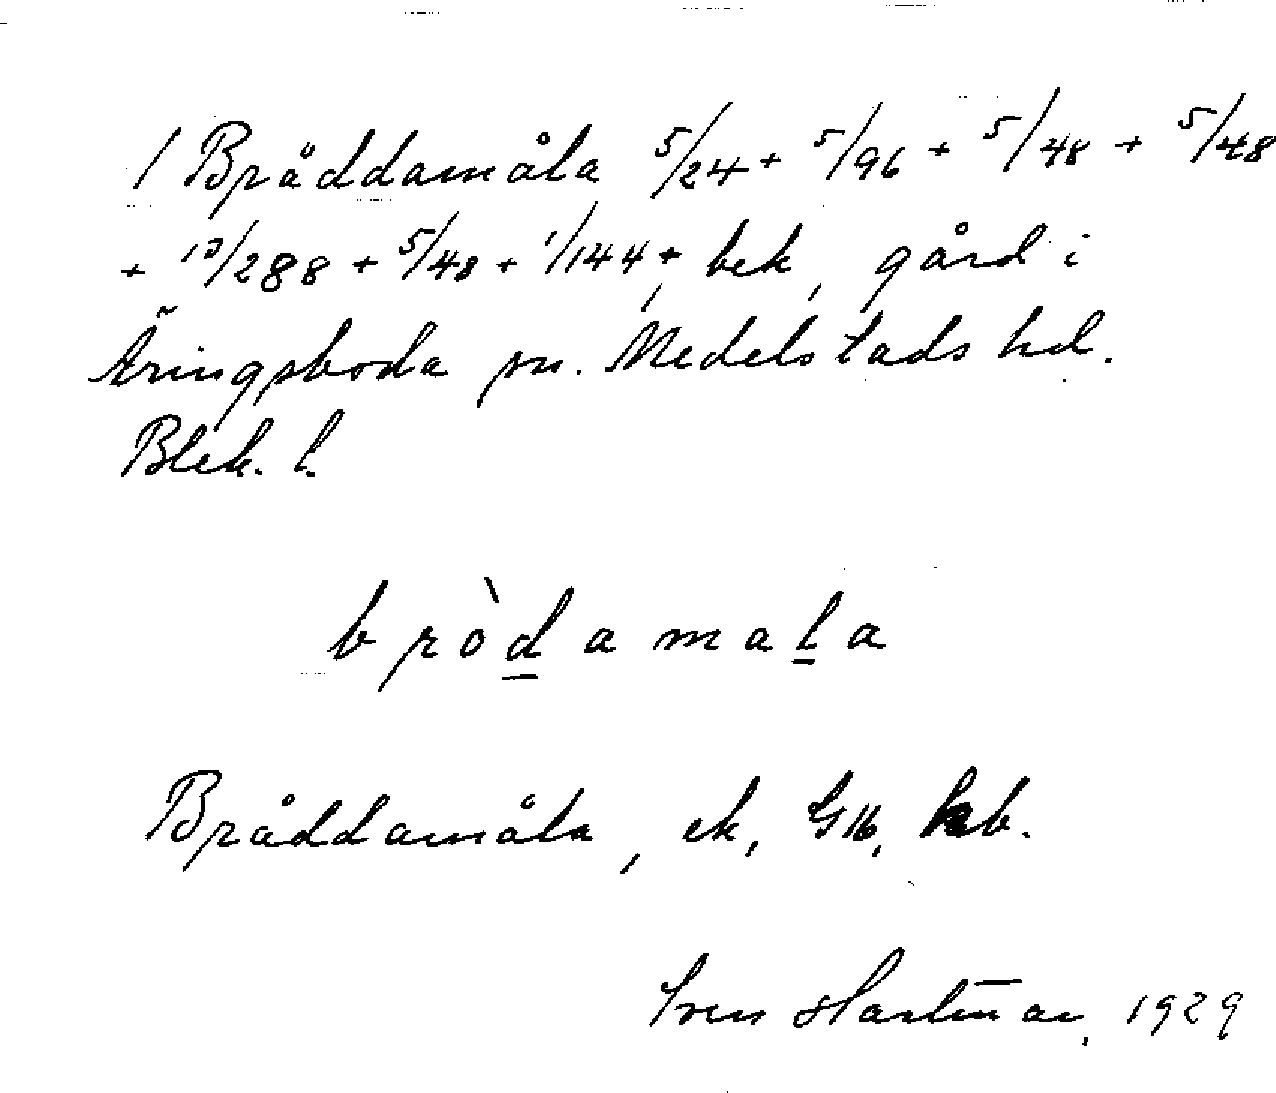 1 Bråddamåla 5/24 + 5/96 + 5/48 + 5/48
+ 13/288 + 5/48 + 1/144 + bek, gård i
Äringsboda sn. Medelstads hd.
Blek. l.
bròdamala
Bråddamåla, ek, Gtb,
Sven Hartman, 1929